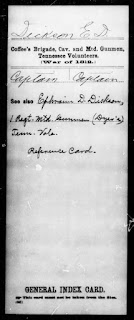 Dickson, E. D.
Coffee's Brigade, Cav. and Mtd. Gunmen,
Tennessee Volunteers.
(War of 1812.)
Captain | Captain
See also Ephraim D. Dickson,
1 Regt. Mtd. Gunmen (Dyer's)
Tenn. Vols.
Reference Card.
GENERAL INDEX CARD.
This card must not be taken from the files.